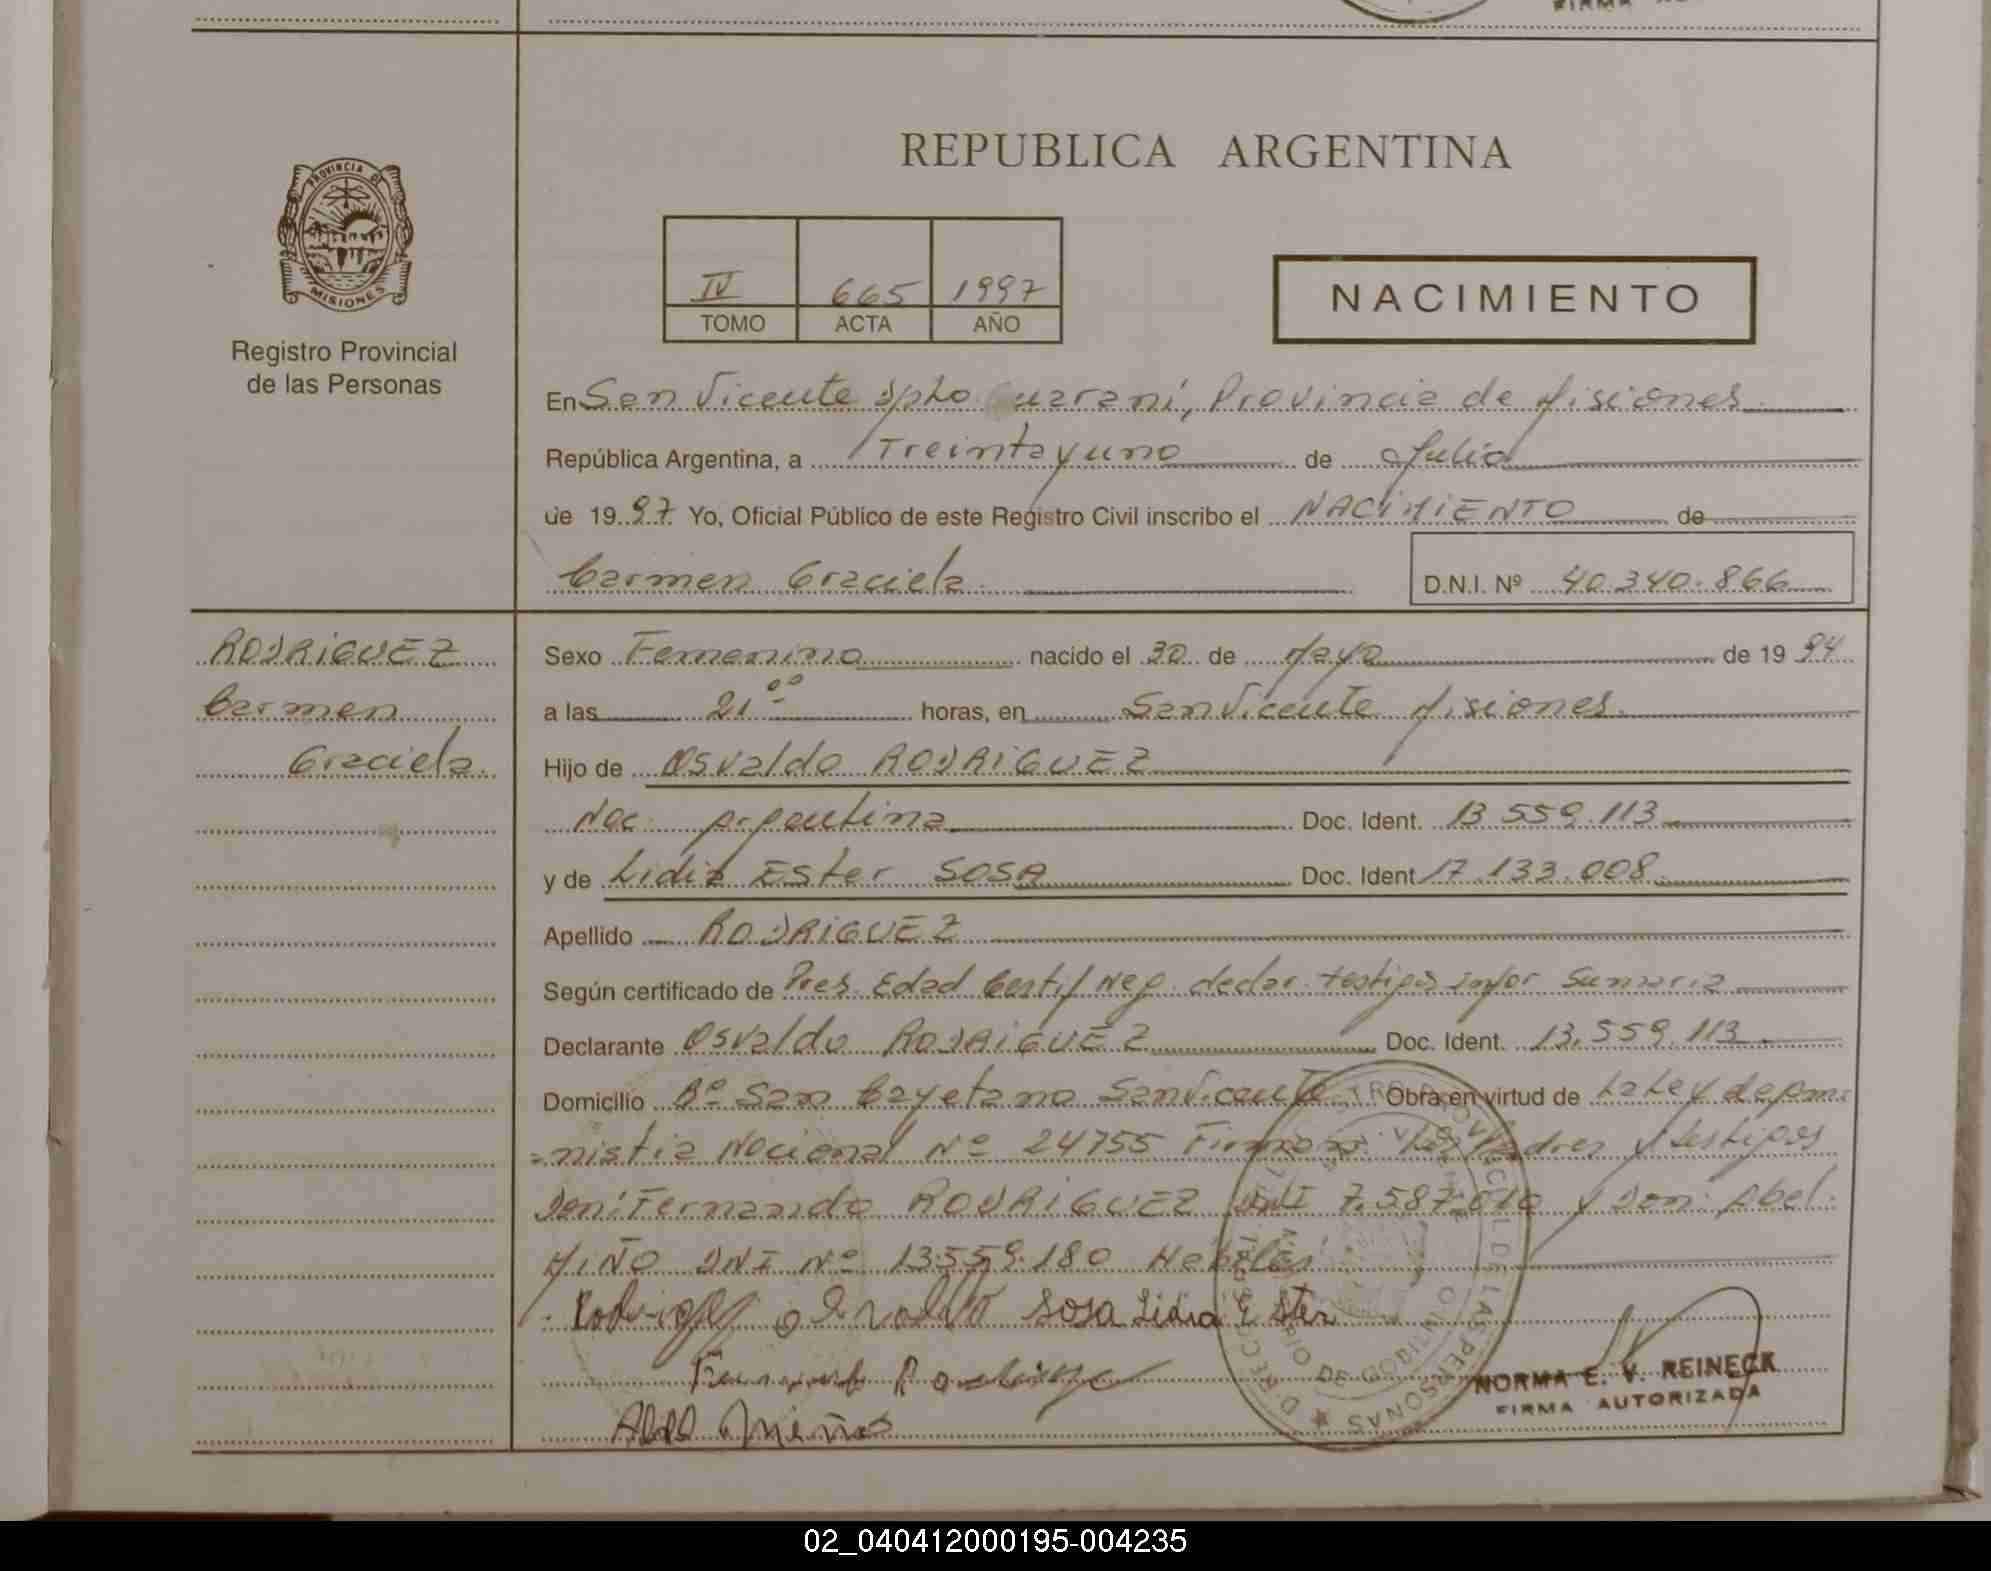 FIRMA
REPUBLICA ARGENTINA
PROVINCIA DE
MISIONES
Registro Provincial
de las Personas
IV 665 1997
TOMO ACTA AÑO
NACIMIENTO
En San Vicente Dpto Guaraní, Provincia de Misiones
República Argentina, a Treinta y uno de Julio
de 19 97 Yo, Oficial Público de este Registro Civil inscribo el NACIMIENTO de
Carmen Graciela
D.N.I. Nº 40.340.866
RODRIGUEZ
Carmen
Graciela
Sexo Femenino nacido el 30 de Mayo de 19 94
a las 21 ºº horas, en San Vicente Misiones
Hijo de Osvaldo RODRIGUEZ
Nac. Argentina Doc. Ident. 13.559.113
y de Lidia Ester SOSA Doc. Ident 17.133.008
Apellido RODRIGUEZ
Según certificado de Pres. Edad Certif Neg. declar. testigos infor Sumaria
Declarante Osvaldo RODRIGUEZ Doc. Ident. 13.559.113
Domicilio Bº San Cayetano San Vicente Obra en virtud de La Ley de Am
=nistia Nacional Nº 24755 Firman Los Padres y testigos
Don: Fernando RODRIGUEZ DNI 7.587.010 y Don: Abel
MIÑO DNI Nº 13.559.180 Hábiles
Sosa Lidia Ester
NORMA E. V. REINECK
FIRMA AUTORIZADA
02_040412000195-004235